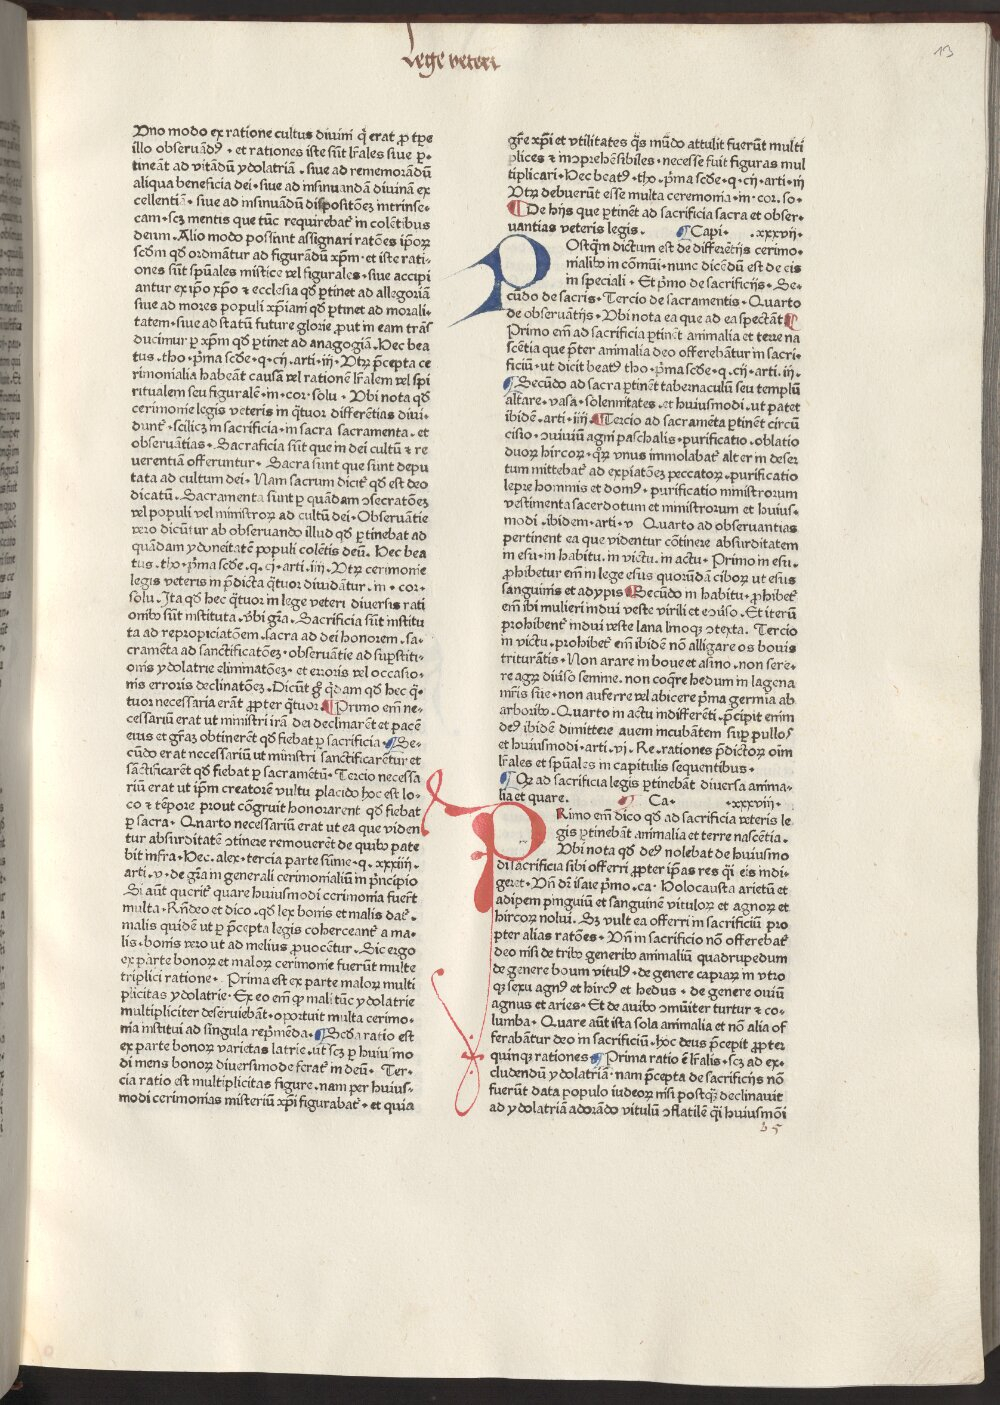 Lege veteri
13
Vno modo ex ratione cultus diuini q̇ erat ꝓ tꝑe
illo obseruādꝰ · et rationes iste sūt lr̄ales siue ꝑ-
tineāt ad vitādū ydolatriā . siue ad rememorādū
aliqua beneficia dei · siue ad insinuandā diuinā ex
cellentiā · siue ad insinuādū dispositōeꝫ intrinse-
cam · scꝫ mentis que tūc requirebat᷑ in colētibus
deum . Alio modo possunt assignari ratōes ip̄oꝝ
scd̄m qd̄ ordināt᷑ ad figurādū xp̄m · et iste rati-
ones sūt sp̄uales mistice vel figurales · siue accipi
antur ex ip̄o xp̄o ⁊ ecclesia qd̄ ꝑtinet ad allegoriā
siue ad mores populi xp̄iani qd̄ ꝑtinet ad morali-
tatem · siue ad statū future glorie ꝓut in eam trās
ducimur ꝑ xp̄m qd̄ ꝑtinet ad anagogiā . Hec bea
tus . tho · p̄ma scd̄e · q · cij · arti · iij · Vtꝝ p̄cepta ce
rimonialia habeāt causā vel rationē lr̄alem vel spi
ritualem seu figuralē · in · cor · solu · Vbi nota qd̄
cerimonie legis veteris in q̄tuor differētias diui-
dunt᷑ · scilicꝫ in sacrificia · in sacra sacramenta · et
obseruātias · Sacraficia sūt que in dei cultū ⁊ re
uerentiā offeruntur · Sacra sunt que sunt depu
tata ad cultum dei · Nam sacrum dicit᷑ qd̄ est deo
dicatū . Sacramenta sunt ꝑ quādam ↄsecratōeꝫ
vel populi vel ministroꝝ ad cultū dei · Obseruātie
vero dicūtur ab obseruando illud qd̄ ꝑtinebat ad
quādam ydoneitatē populi colētis deū . Hec bea
tus . tho · p̄ma scd̄e . q · cj · arti . iiij . Vtꝝ cerimonie
legis veteris in p̄dicta q̄tuor diuidātur . in · cor ·
solu . Ita qd̄ hec q̄tuor in lege veteri diuersis rati
onibꝰ sūt instituta . v̄bi gr̄a . Sacrificia sūt institu
ta ad repropiciatōem . sacra ad dei honorem . sa-
cramēta ad sanctificatōeꝫ · obseruātie ad suꝑstiti-
onis ydolatrie eliminatōeꝫ · et erroris vel occasio-
nis erroris declinatōeꝫ . Dicūt gͦ q̇dam qd̄ hec q̄-
tuor necessaria erāt ꝓpter q̄tuor ¶ Primo em̄ ne-
cessariū erat ut ministri irā dei declinarēt et pacē
eius et gr̄aꝫ obtinerēt qd̄ fiebat ꝑ sacrificia · ¶ Se-
cūdo erat necessariū ut ministri sanctificarētur et
sāctificarēt qd̄ fiebat ꝑ sacramētū · Tercio necessa
riū erat ut ip̄m creatorē vultu placido hoc est lo-
co ⁊ tēpore prout cōgruit honorarent qd̄ fiebat
ꝑ sacra · Quarto necessariū erat ut ea que viden
tur absurditatē ↄtinere remouerēt de quibꝰ pate
bit infra · Hec . alex · tercia parte sūme · q . xxxiiij .
arti . v · de gn̄a in generali cerimonialiū in p̄ncipio
Si aūt querit᷑ quare huiusmodi cerimonia fuerūt
multa · Rn̄deo et dico . qd̄ lex bonis et malis dat᷑ .
malis quidē ut ꝑ p̄cepta legis coherceant᷑ a ma-
lis · bonis vero ut ad melius ꝓuocētur . Sic ergo
ex parte bonoꝝ et maloꝝ cerimonie fuerūt multe
triplici ratione · Prima est ex parte maloꝝ multi
plicitas ydolatrie · Ex eo em̄ ꝙ mali tūc ydolatrie
multipliciter deseruiebāt · oportuit multa cerimo-
nia institui ad singula repm̄ēda · ¶ Scd̄a ratio est
ex parte bonoꝝ varietas latrie . ut scꝫ ꝑ huiusmo
di mens bonoꝝ diuersimode ferat᷑ in deū · Ter-
cia ratio est multiplicitas figure . nam per huius-
modi cerimonias misteriū xp̄i figurabat᷑ · et quia
gr̄e xp̄i et vtilitates qūs mūdo attulit fuerūt multi
plices ⁊ inↄprehēsibiles · necesse fuit figuras mul
tiplicari · Hec beatꝰ . tho . p̄ma scd̄e · q · cij · arti · iij
Vtꝝ debuerūt esse multa ceremonia · in · cor . so ·
¶ De hijs que ꝑtinēt ad sacrificia sacra et obser-
uantias veteris legis . ¶ Capi . xxxvij ·
POstq̄m dictum est de differētijs cerimo-
nialibꝰ in cōmūi · nunc dicēdū est de eis
in speciali · Et p̄mo de sacrificijs · Se-
cūdo de sacris · Tercio de sacramentis · Quarto
de obseruātijs · Vbi nota ea que ad ea spectāt ¶
Primo em̄ ad sacrificia ꝑtinēt animalia et terre na
scētia que p̄ter animalia deo offerebātur in sacri-
ficiū · ut dicit beatꝰ tho · p̄ma scd̄e · q · cij · arti . iij .
¶ Secūdo ad sacra ꝑtinent tabernaculū seu templū
altare · vasa · solennitates . et huiusmodi . ut patet
ibidē . arti · iiij · ¶ Tercio ad sacramēta ꝑtinēt circū
cisio · ↄuiuiū agni paschalis · purificatio · oblatio
duoꝝ hircoꝝ · quoꝝ vnus immolabat᷑ alter in deser
tum mittebat᷑ ad expiatōeꝫ peccatoꝝ . purificatio
lepre hominis et domꝰ · purificatio ministrorum
vestimenta sacerdotum et ministrorum et huius-
modi . ibidem . arti · v Quarto ad obseruantias
pertinent ea que videntur cōtinere absurditatem
in esu · in habitu . in victu . in actu · Primo in esu .
ꝓhibetur em̄ in lege esus quorūdā ciboꝝ ut esus
sanguinis et adypis ¶ Secūdo in habitu · ꝓhibet᷑
em̄ ibi mulieri indui veste virili et ecōuerso . Et iterū
prohibent᷑ indui veste lana linoqꝫ ↄtexta . Tercio
in victu . prohibet᷑ em̄ ibidē nō alligare os bouis
triturātis · Non arare in boue et asino . non sere-
re agꝝ diuerso semine . non coq̄re hedum in lagena
mr̄is sue · non auferre vel abicere p̄ma germina ab
arboribꝰ . Quarto in actu indifferēti . p̄cipit enim
deꝰ ibidē dimittere auem incubātem suꝑ pullos
et huiusmodi · arti · vj . Re . rationes p̄dictoꝝ oīm
lr̄ales et sp̄uales in capitulis sequentibus ·
¶ Qꝫ ad sacrificia legis ꝑtinebāt diuersa anima-
lia et quare . ¶ Ca · xxxviij ·
PRimo em̄ dico qd̄ ad sacrificia veteris le
gis ꝑtinebāt animalia et terre nascētia .
Vbi nota qd̄ deꝰ nolebat de huiusmo
di sacrificia sibi offerri ꝓpter ip̄as res q̇ eis indi-
geret · Vn̄ dr̄ isaie p̄mo . ca · Holocausta arietū et
adipem pinguiū et sanguinē vituloꝝ et agnoꝝ et
hircoꝝ nolui . Sꝫ vult ea offerri in sacrificiū pro
pter alias ratōes · Vn̄ in sacrificio nō offerebat᷑
deo nisi de tribꝰ generibꝰ animaliū quadrupedum
de genere boum vitulꝰ · de genere capraꝝ in vtro
qꝫ sexu agnꝰ et hircꝰ et hedus · de genere ouiū
agnus et aries · Et de auibꝰ om̄niter turtur ⁊ co-
lumba · Quare aūt ista sola animalia et nō alia of
ferabātur deo in sacrificiū . hoc deus p̄cepit ꝓpter
quinqꝫ rationes ¶ Prima ratio ē lr̄alis · scꝫ ad ex-
cludendū ydolatriā · nam p̄cepta de sacrificijs nō
fuerūt data populo iudeoꝝ nisi postqꝫ declinauit
ad ydolatriā adorādo vitulū ↄflatilē q̇ huiusmōi
b 5